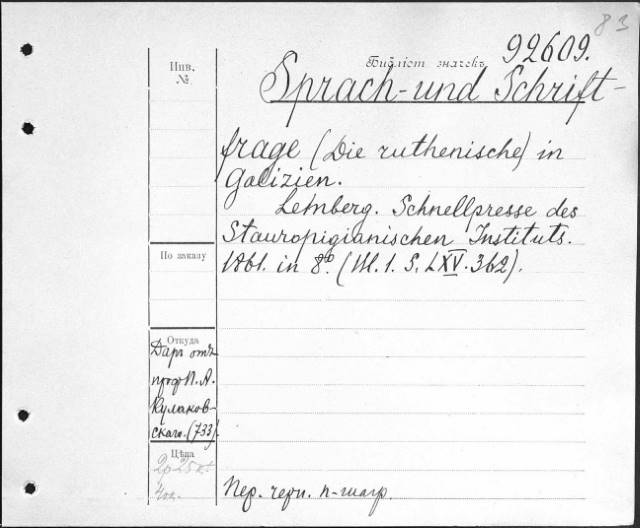 83
92609.
Библіот значекъ
Инв.
№
Sprach-und Schrift-
frage (Die ruthenische) in
Galizien.
Lemberg. Schnellpresse des
Stauropigianischen Instituts.
1861. in 8º. (III. 1. S. LXV. 362).
По заказу
Откуда
Даръ отъ
проф. П. А.
Кулаков-
скаго. (733).
Цѣна
2р 25к
Пер. черн. п-шагр.